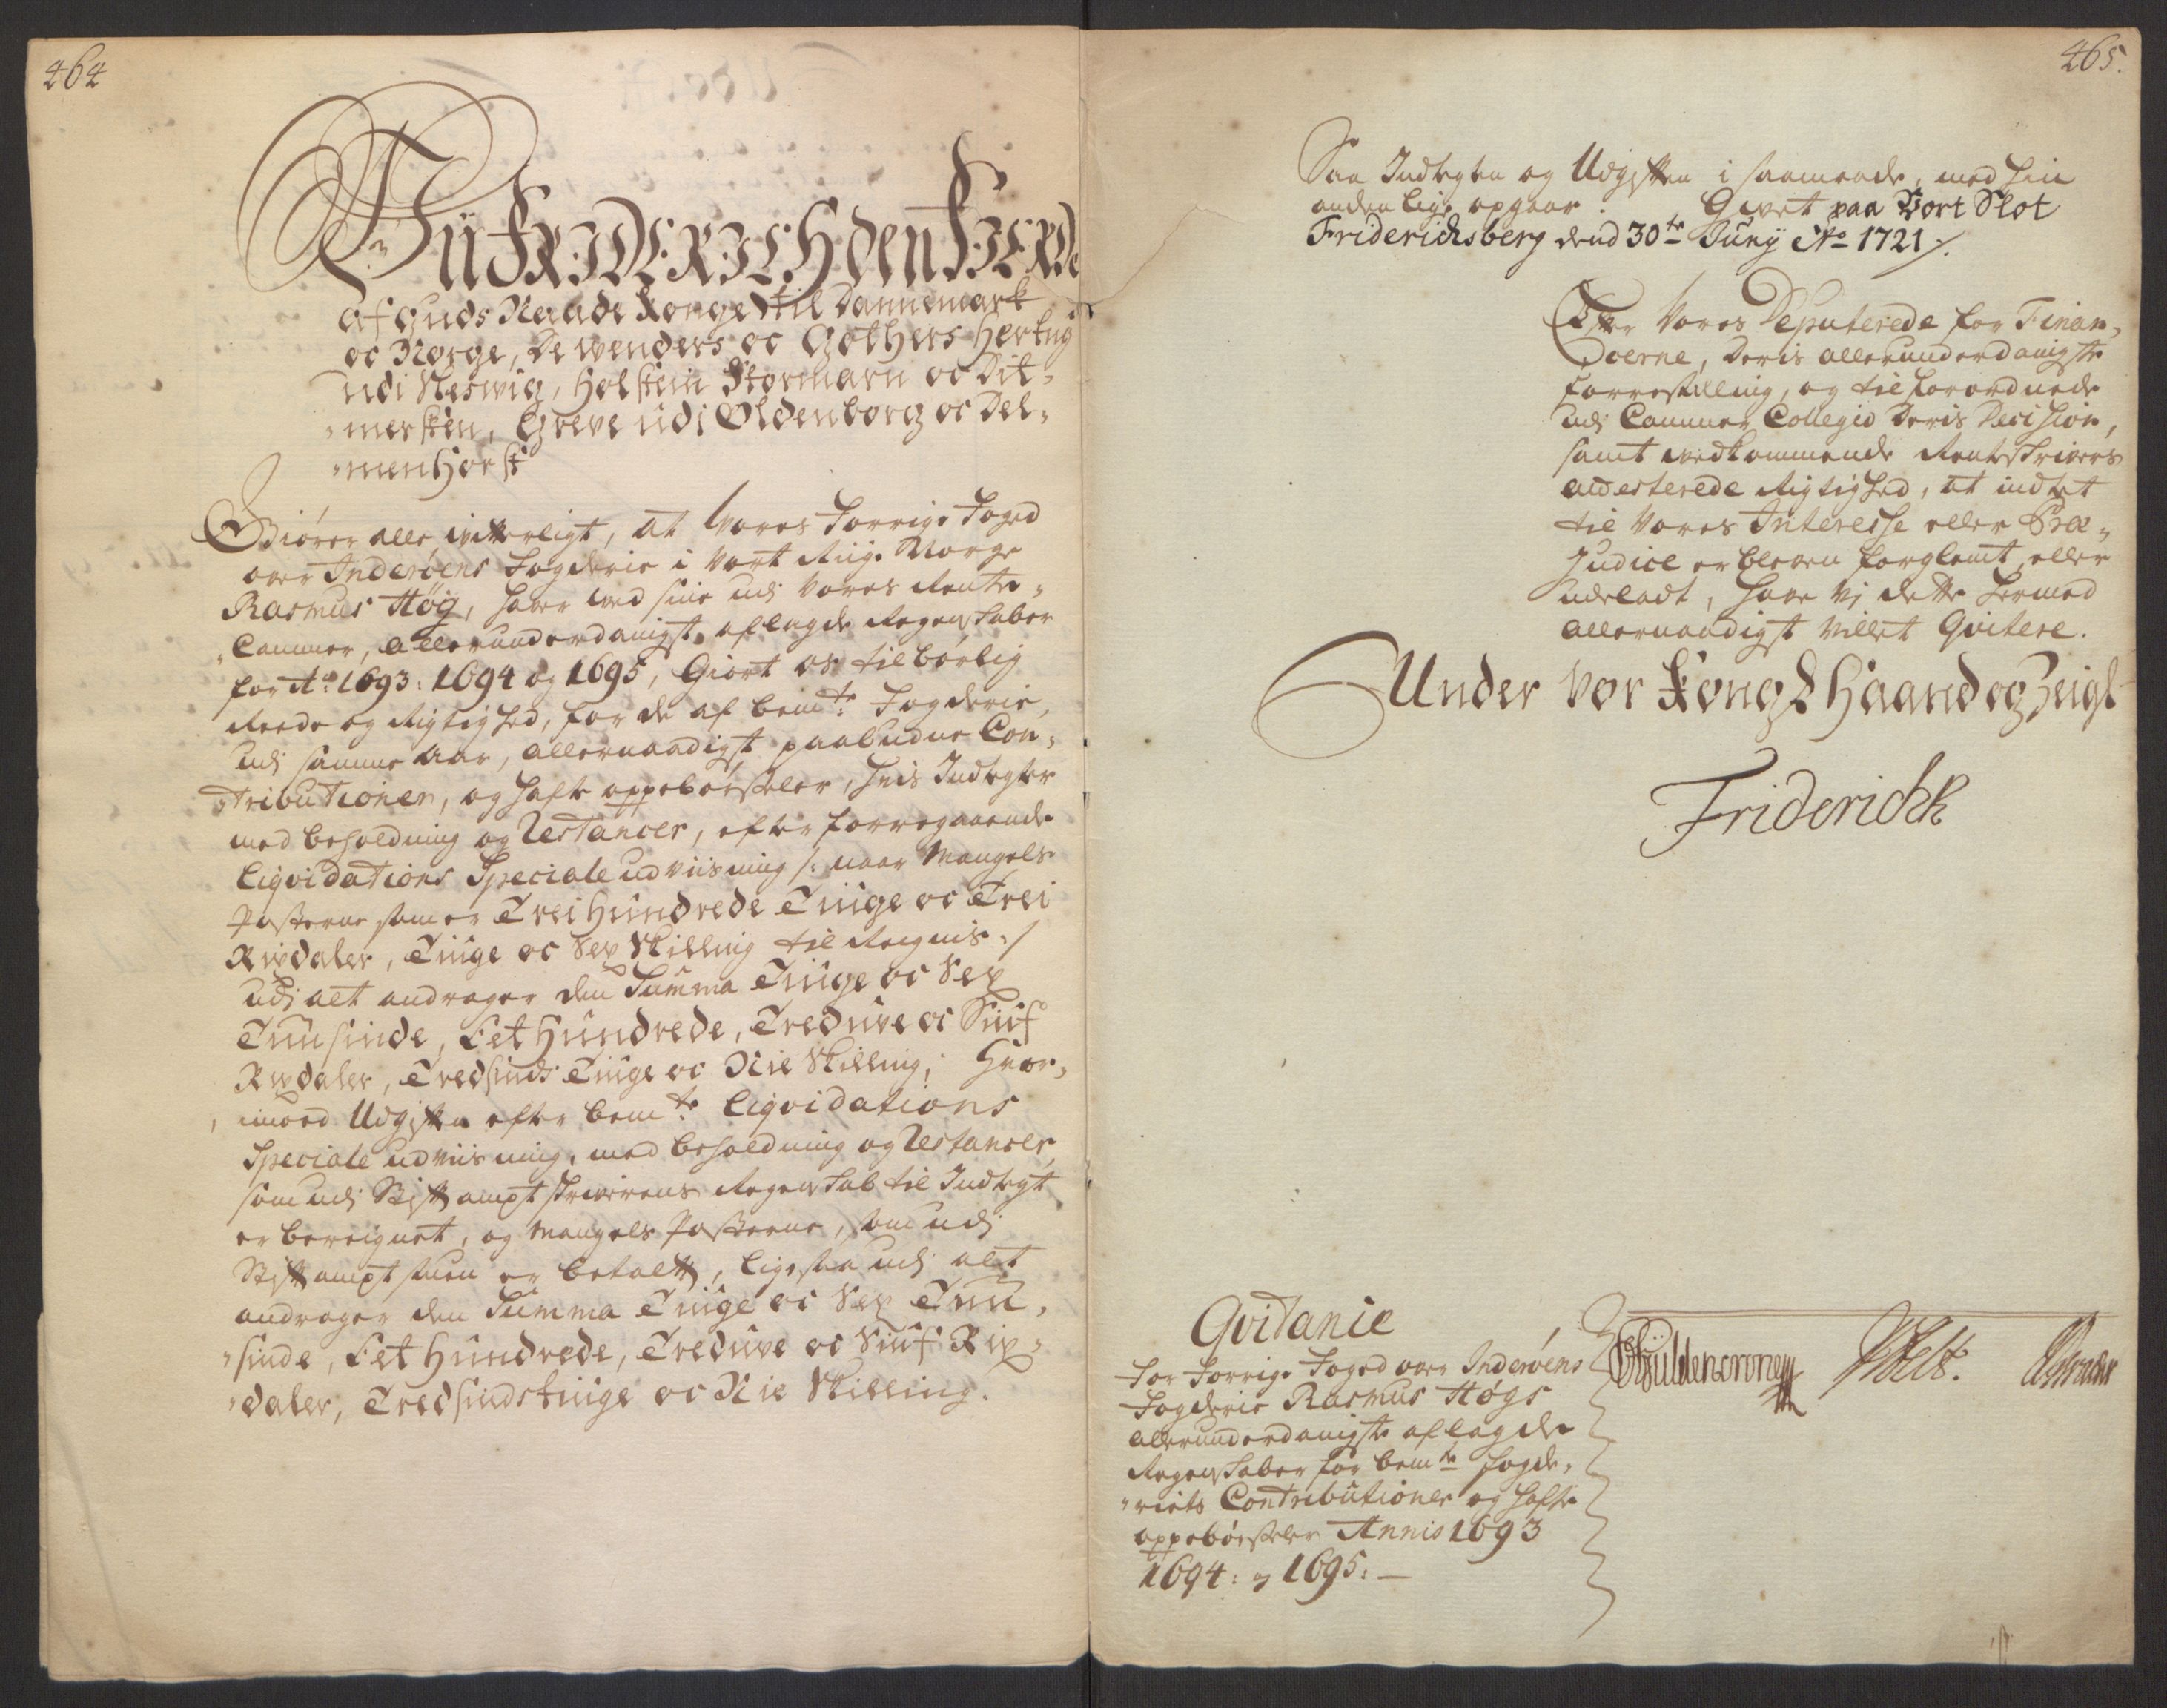 464
Wii FRIDERICH den FIERDE
af Guds Naade Konge til Dannemark
oc Norge, De Wenders oc Gothers Hertug
udi Slesvig, Holstein Stormarn oc Dit-
-mersken, Greve udi Oldenborg oc Del-
-menhorst
Giører alle witterligt, at Vores Forrige Foged
over Inderøens Fogderie i Vort Riige Norge
Rasmus Høg, haver ved sine udi Vores Rente-
-Cammer, allerunderdanigst aflagde Regenskaber
for Ao. 1693: 1694 og 1695, Giort os tilbørlig
Reede og Rigtighed, for de af bemte. Fogderie,
udi samme Aar, allernaadigst paabudne Con-
-tributioner, og Haste oppebørseler, hvis Indtegter
med beholdning og Restancer, efter foregaaende
Liqvidations Speciale udviisning /: naar Mangels
Posterne som er Trei Hundrede Tiuge oc Trei
Rixdaler, Tiuge oc Sex Skilling til Regnis :/
udj alt andrager den Summa Tiuge oc Sex
Tuusinde, Eet Hundrede, Tredive oc Siuf
Rixdaler, Tredsinds Tiuge oc Nie Skilling; Hvor-
-imod Udgiften efter bemte. Liqvidations
Speciale udviisning, med beholdning og Restancer,
som udj Stiftamptskriverens Regenskab til Indtegt
er bereignet, og Mangels Posterne, som udj
Stiftamptstuen er betalt, ligesaa udj alt
andrager den Summa Tiuge oc Sex Tuu-
-sinde, Eet Hundrede, Tredive oc Siuf Rix-
-daler, Tredsindstiuge oc Nie Skilling.
465.
Saa Indtegten og Udgiften i saamaade, med hin
anden lige opgaar. Givet paa Vort Slot
Friderichsberg dend 30te Junij Ao 1721 /.
Efter Vores Deputerede for Finan-
-cerne, Deris allerunderdanigste
forrestilling, og tilforordnede
udj Cammer Collegio Deris Decision,
samt vedkommende Renteskrivers
attesterede Rigtighed, at indtet
til Vores Interesse eller Præ-
judice er bleven forglemt, eller
udeladt, have Vj dette hermed
allernaadigst villet Qvitere.
Under Vor Kongl Haand og Zeigl
Friderich R
Qvitanie
For Forrige Foged over Inderøens
Fogderie Rasmus Høgs
allerunderdanigste aflagde
Regenskaber for bemte Fogde-
-riets Contributioner og Haste
oppebørseler Annis 1693
1694: og 1695: —
CGüldencrone